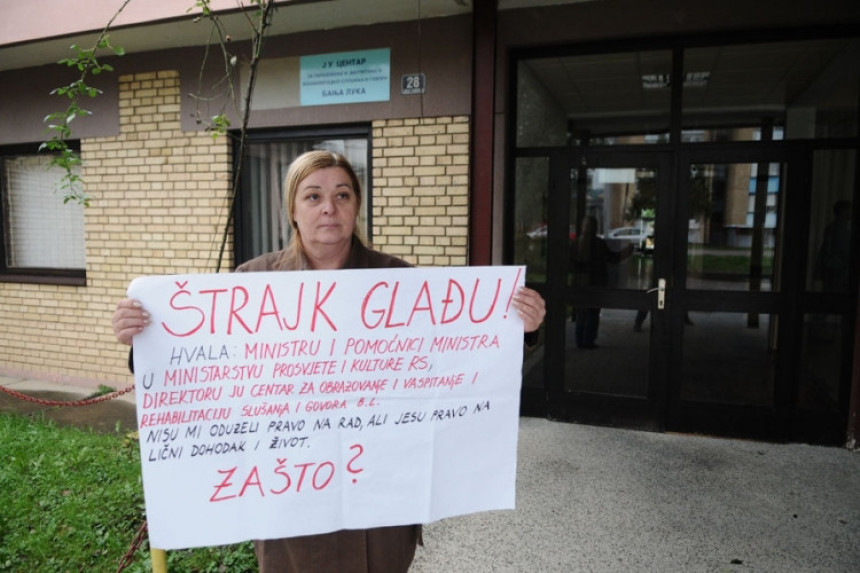 ЈУ ЦЕНТАР
ЗА ОБРАЗОВАЊЕ И ВАСПИТАЊЕ И
РЕХАБИЛИТАЦИЈУ СЛУШАЊА И ГОВОРА
БАЊА ЛУКА
28
ŠTRAJK GLAĐU!
HVALA: MINISTRU I POMOĆNICI MINISTRA
U MINISTARSTVU PROSVJETE I KULTURE RS,
DIREKTORU JU CENTAR ZA OBRAZOVANJE I VASPITANJE I
REHABILITACIJU SLUŠANJA I GOVORA B.L.
NISU MI ODUZELI PRAVO NA RAD, ALI JESU PRAVO NA
LIČNI DOHODAK I ŽIVOT.
ZAŠTO?